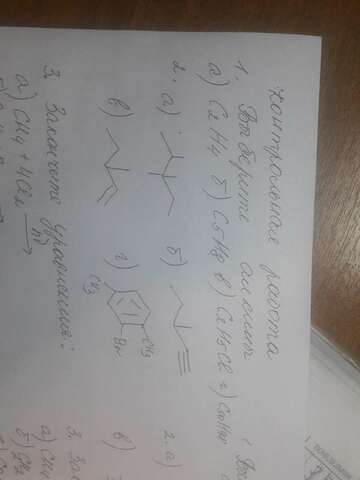 Контрольная работа
1. Выберите алкины
а) C2H4 б) C5H8 в) C2H5Cl г)
2. а) б)
в) г) CH3 Br CH3
3. Закончите уравнения:
а) CH4 + 4Cl2 hν →
2. а)
в)
3. Зак
а) CH4
б)